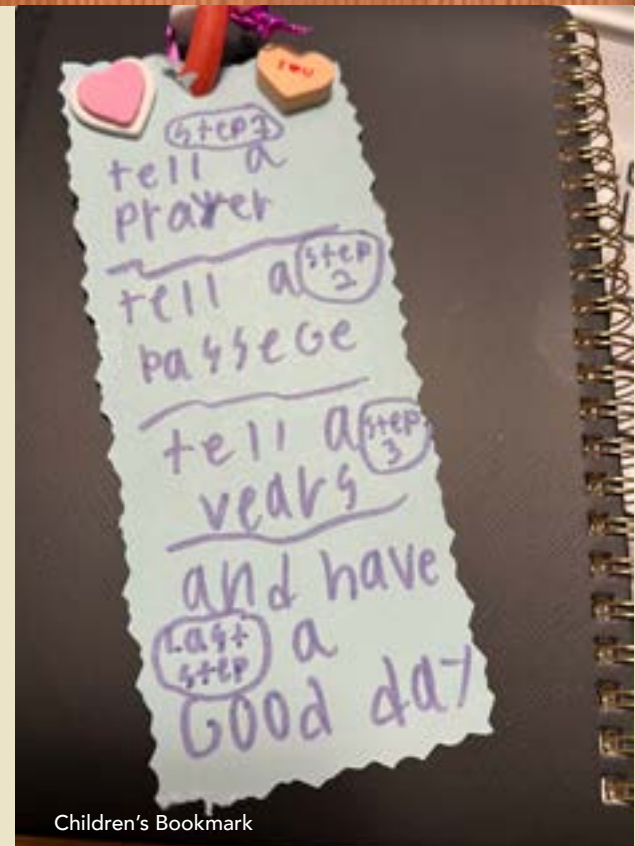 I ♥ U
step 1
tell a
prayer
tell a step 2
passege
tell a step 3
vears
and have
Last step a
Good day
Children's Bookmark